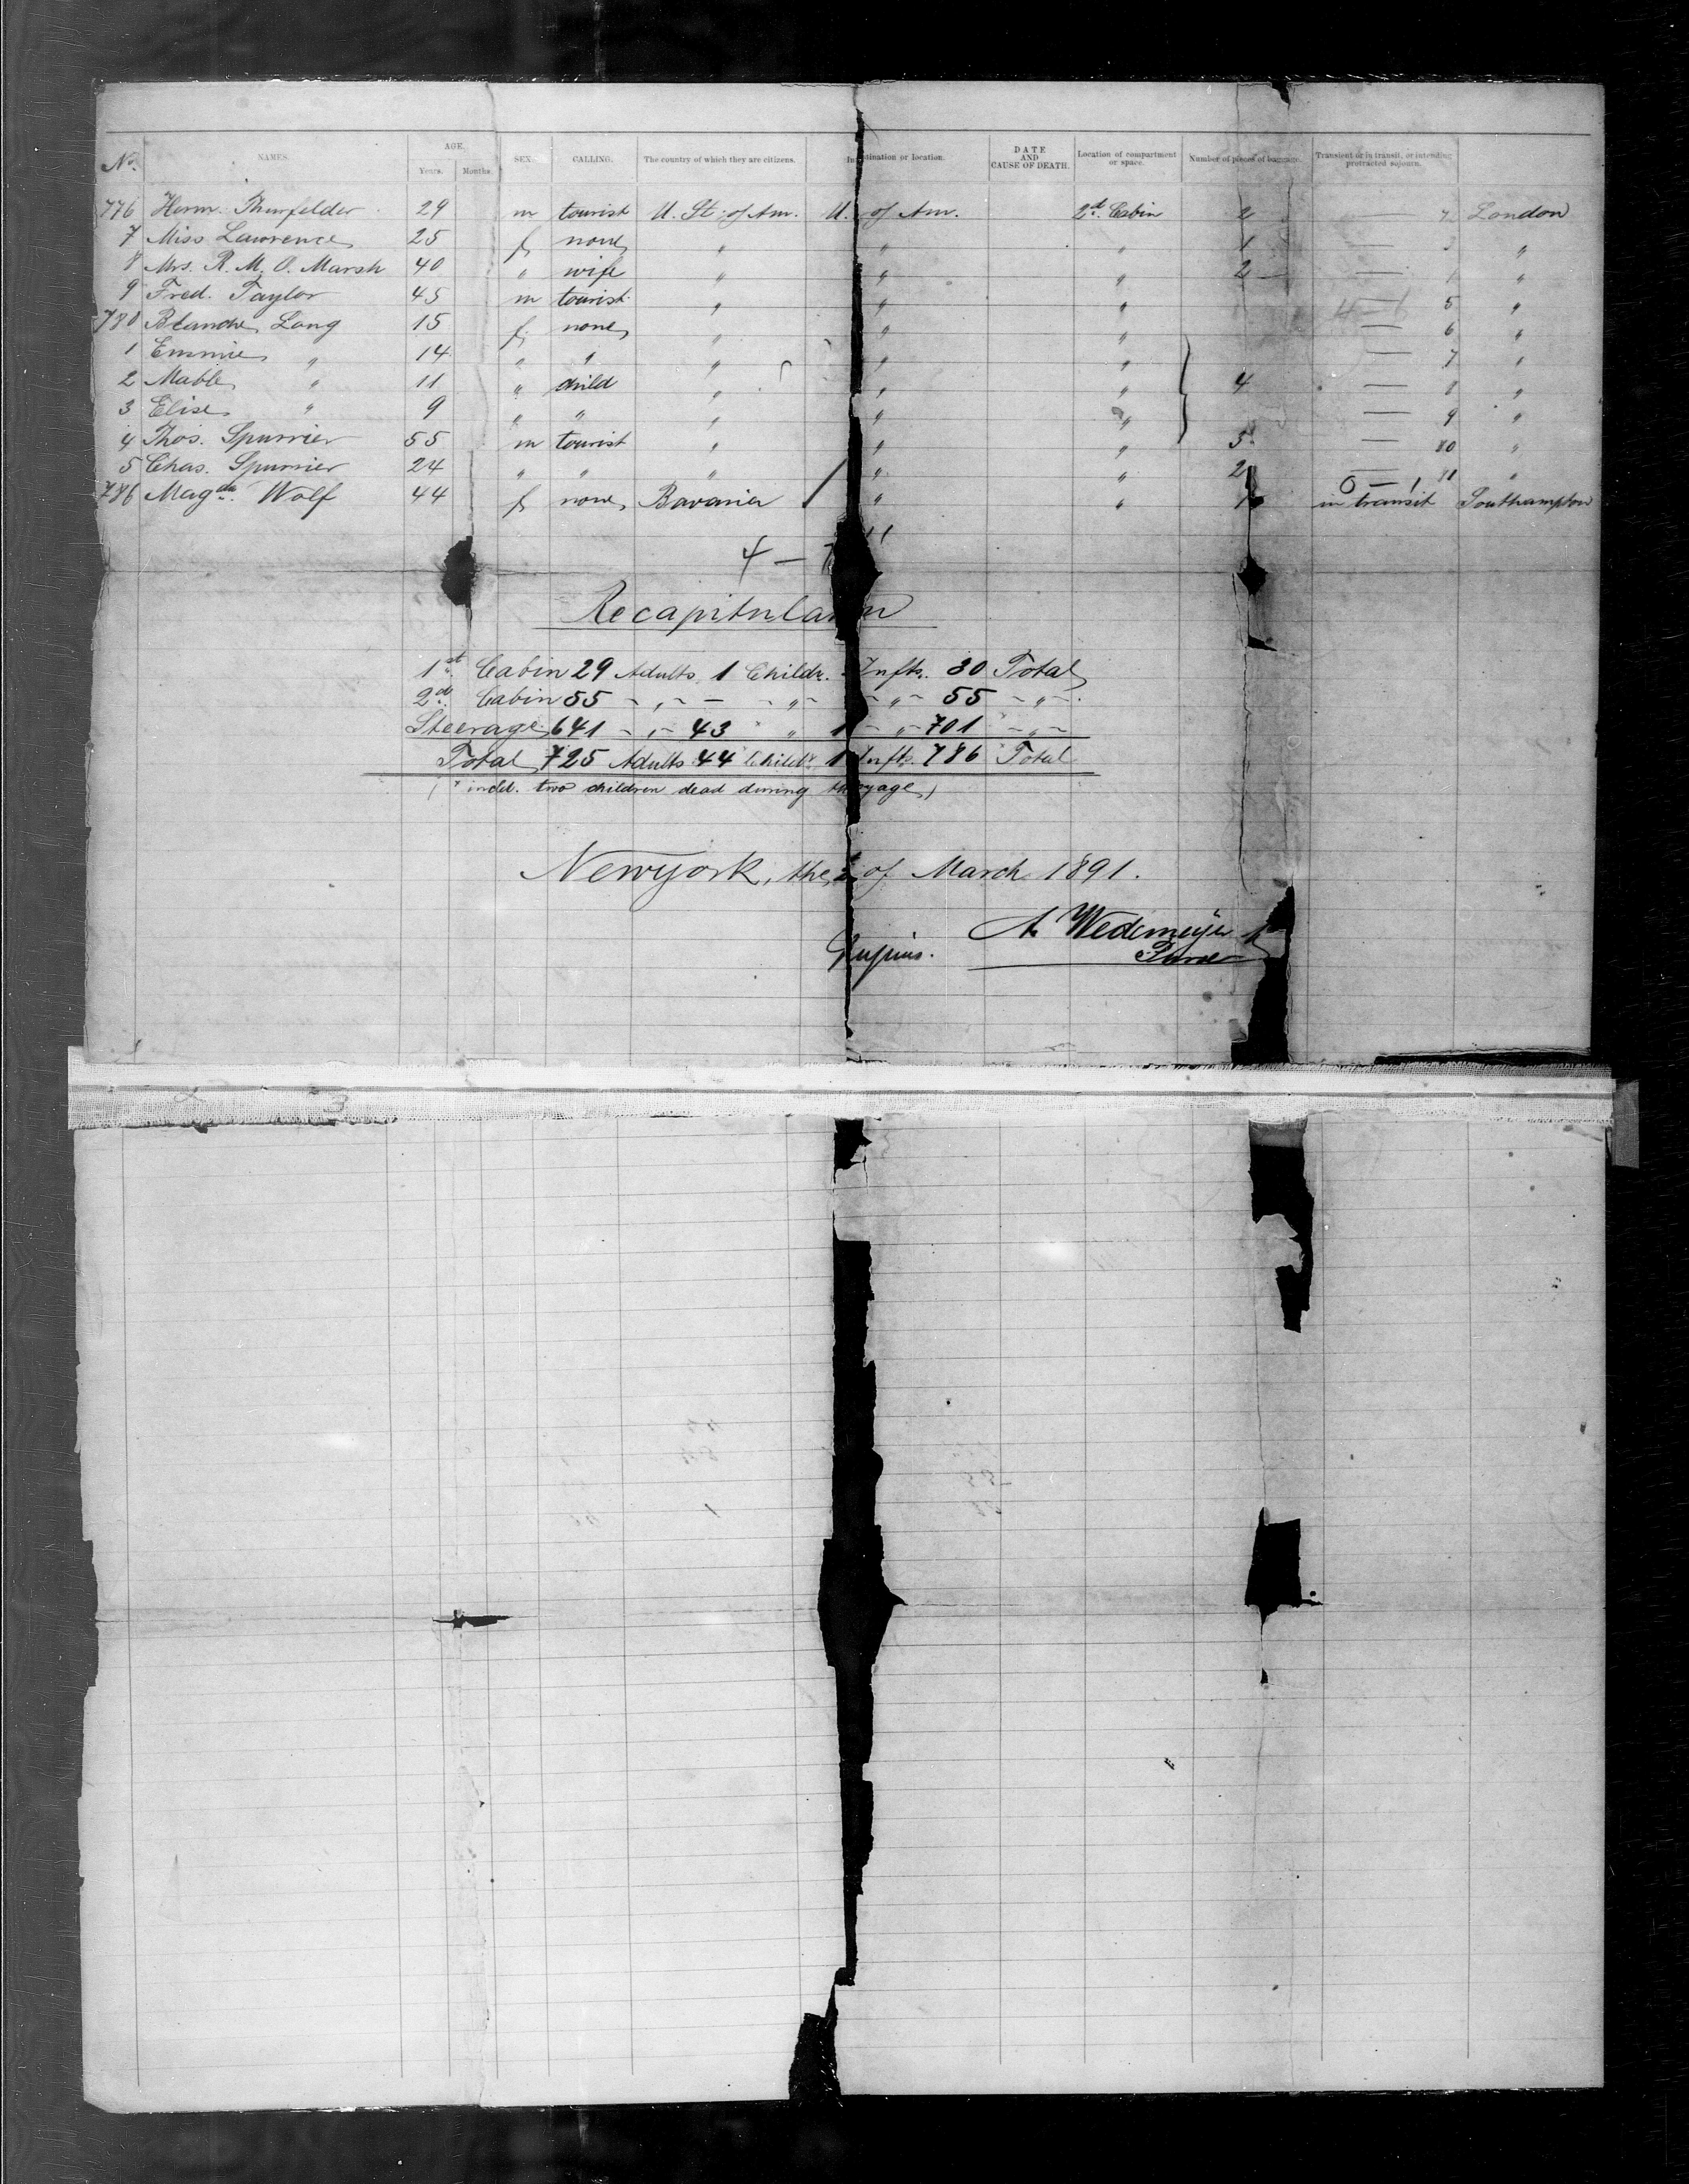 No. NAMES. AGE. Years. Months. SEX. CALLING. The country of which they are citizens. In tination or location. DATE AND CAUSE OF DEATH. Location of compartment or space. Number of pieces of baggage. Transient or in transit, or intending protracted sojourn.
776 Herm. Thurnfelder 29 m tourist U. St. of Am. U. of Am. 2d. Cabin 2 London
7 Miss Lawrence 25 f none " " " 1 — "
8 Mrs. R. M. O. Marsh 40 " wife " " " 2 — "
9 Fred. Taylor 45 m tourist " " " 5 "
780 Blanche Long 15 f none " " " — 6 "
1 Emmie " 14 " " " " " — 7 "
2 Mable " 11 " child " " " 4 — 8 "
3 Elise " 9 " " " " " — 9 "
4 Thos. Spurrier 55 m tourist " " " 5 — 80 "
5 Chas. Spurrier 24 " " " " " 2 — 81 "
786 Magda. Wolf 44 f none Bavaria / " " 1 in transit Southampton
0 – 1
4 – 11
Recapitulation
1st. Cabin 29 Adults 1 Childr. Infts. 30 Total
2d. Cabin 55 - „ - — - „ - - „ - 55 - „ -
Steerage 641 - „ - 43 * „ 1 - „ - 701 * - „ -
Total 725 Adults 44 Childr. 1 Infts. 786 Total
( * incl. two children dead during voyage)
Newyork, the of March 1891.
A. Wedemeyer
Purser
2 3